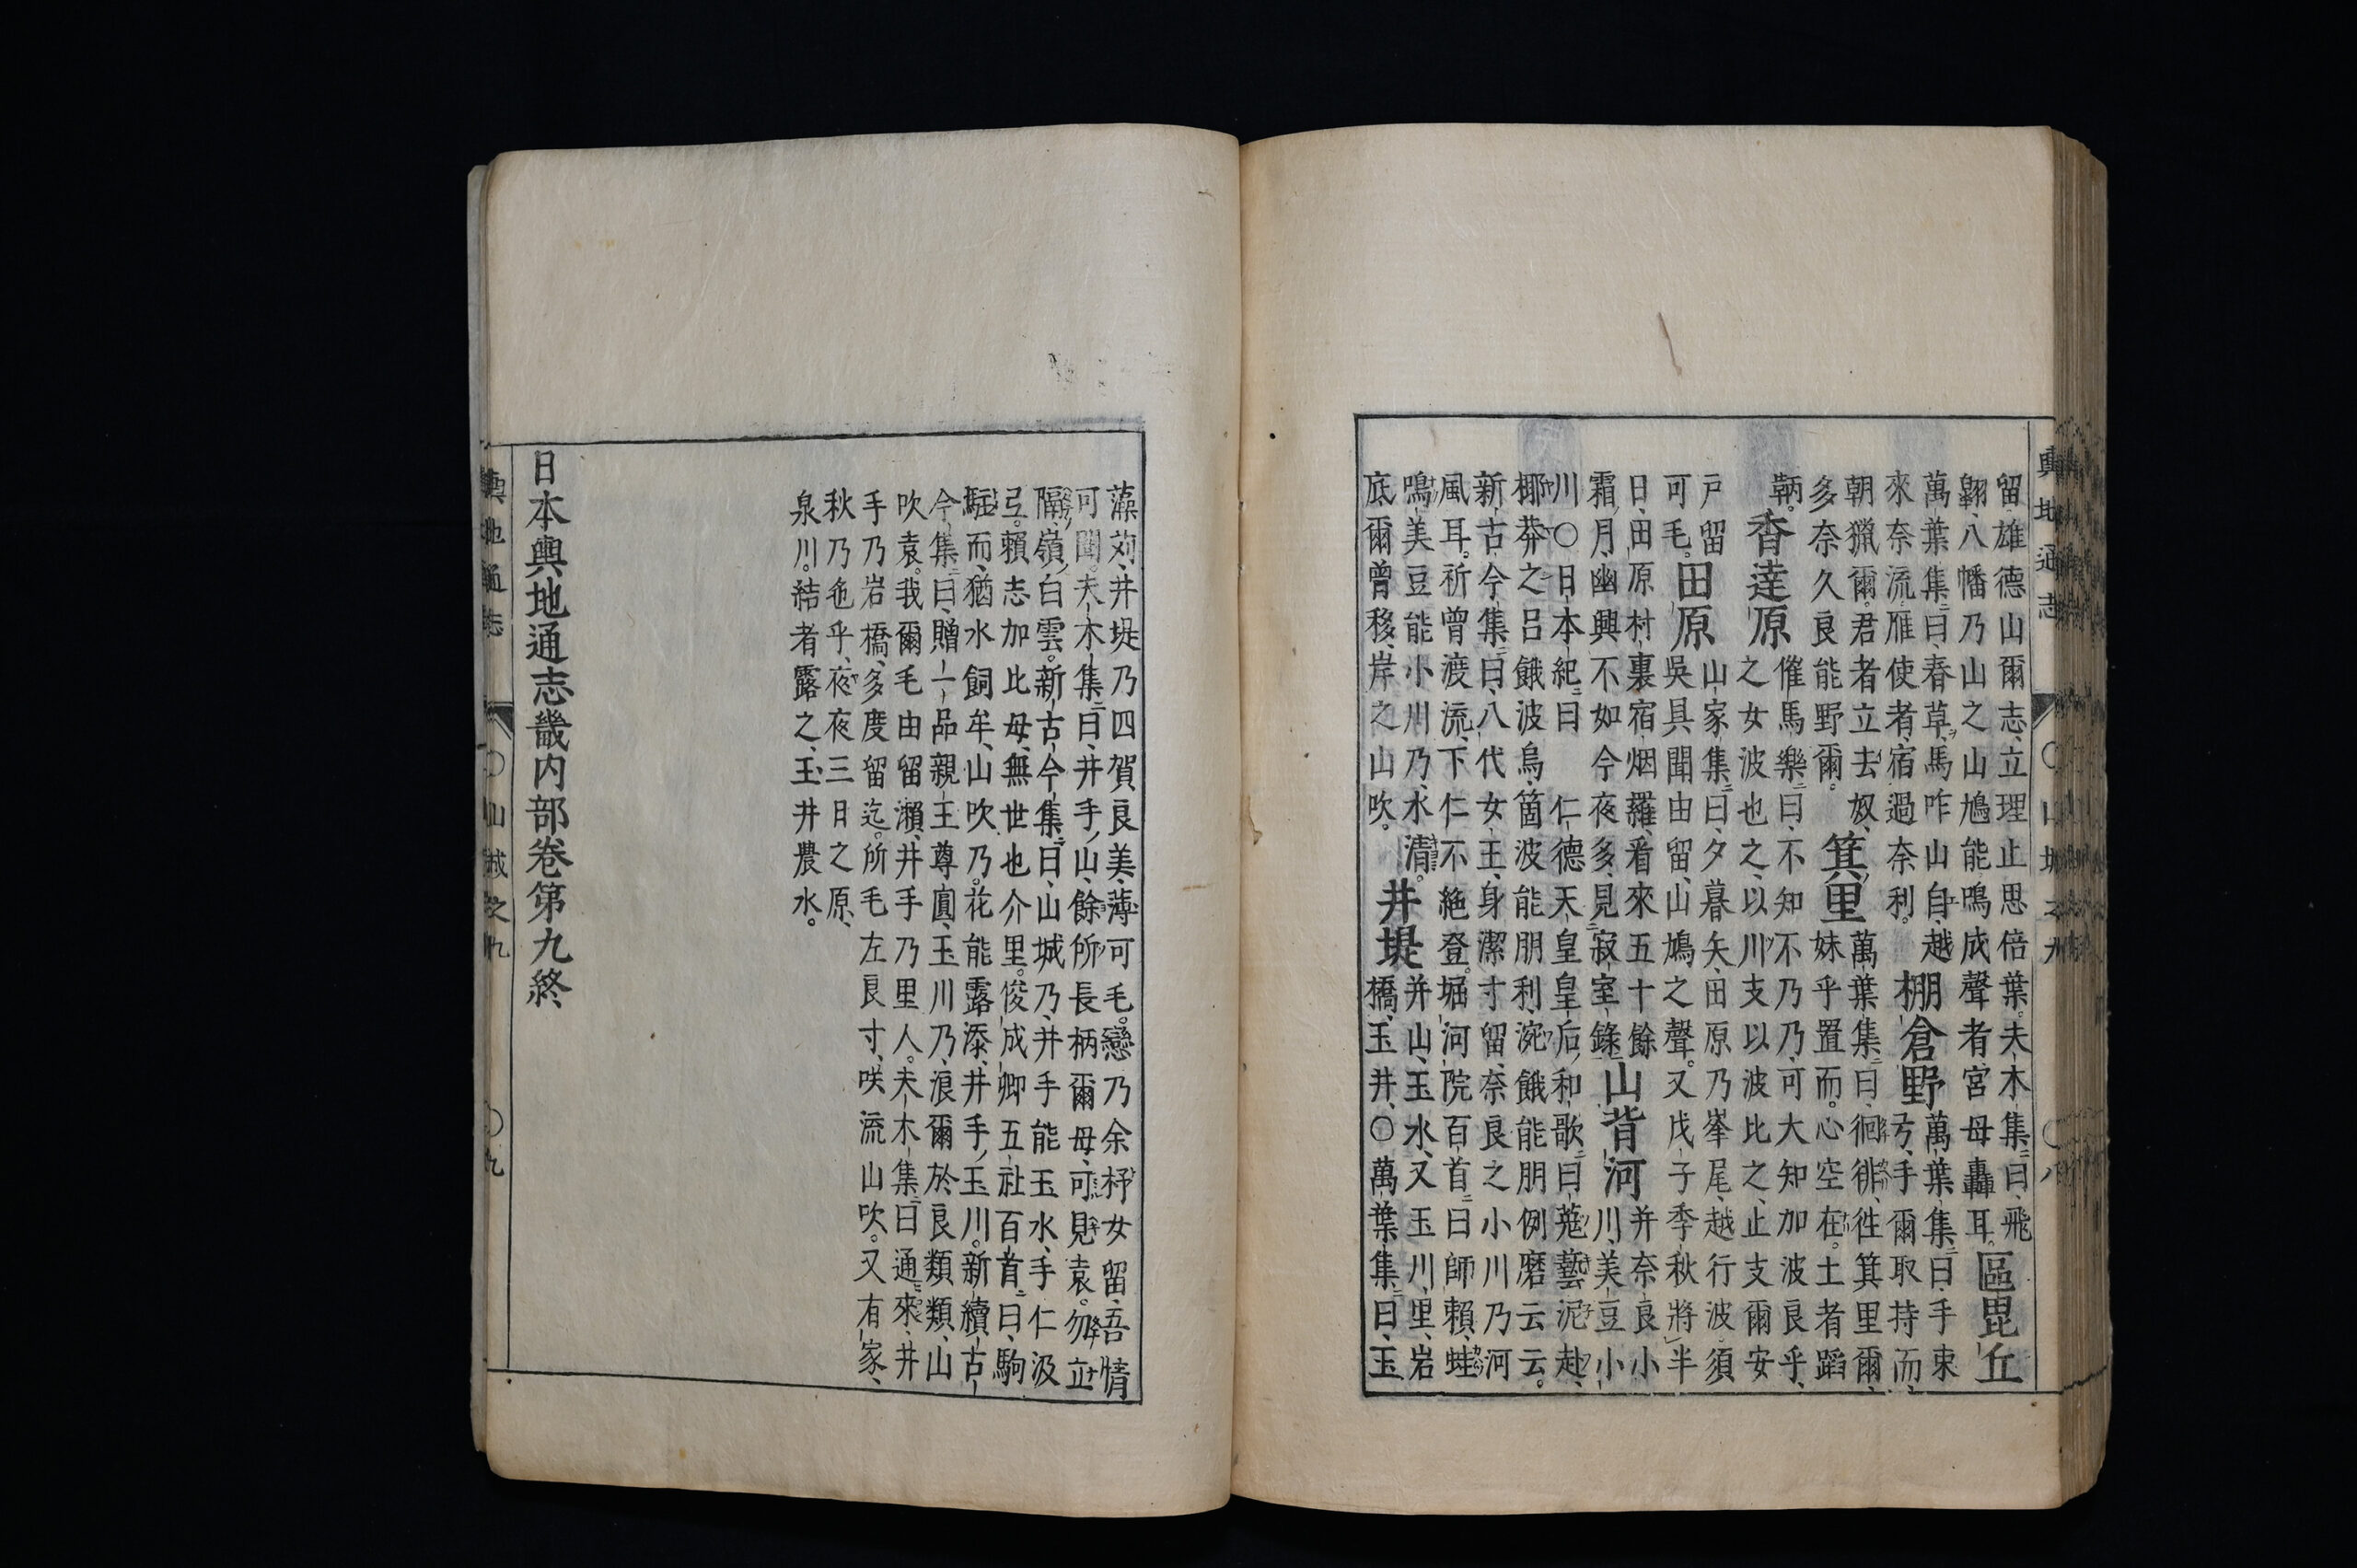 輿地通志
〇山城之九
〇八
留雄德山爾志立理止思倍葉。夫木集曰、飛
翱、八幡乃山之山鳩能鳴成聲者、宮母轟耳。區毘丘
萬葉集曰、春草馬咋山自、越
來奈流雁使者、宿過奈利。棚倉野
萬葉集曰、手束
弓、手爾取持而、
朝獵爾。君者立去奴、
多奈久良能野爾。箕里
萬葉集曰、徊徘、徃箕里爾、
妹乎置而。心空在。土者蹈
鞆。香達原
催馬樂曰、不知不乃乃、可大知加波良乎、
之女波也之、以川支以波比之、止支爾安
戸留
可毛。田原
山家集曰、夕暮矢、田原乃峯尾越行波須
吳具聞由留、山鳩之聲。又戊子季秋將半
日、田原村裏宿烟羅、看來五十餘
霜月、幽興不如今夜多、見寂室錄、山背河
并奈良小
川、美豆小
川〇日本紀曰 仁德天皇皇后、和歌曰、菟藝泥赴、
揶莽之呂餓波烏、箇波能朋利、涴餓能朋例磨云云。
新古今集曰、八代女王、身潔寸留、奈良之小川乃河
風耳。祈曾渡流、下仁不絶登。堀河院百首曰、師賴、蛙
鳴、美豆能小川乃、水清。井堤
并山、玉水、又玉川、里、岩
橋、玉井、〇萬葉集曰、玉
底爾曾移、岸之山吹。
藻苅、井堤乃四賀良美、薄可毛。戀乃余杼女留、吾情
可聞。夫木集曰、井手山、餘所長柄爾母、可見袁。勿立
隔、嶺白雲。新古今集曰、山城乃、井手能玉水、手仁汲
弖。賴志加比母、無世也介里。俊成卿五社百首曰、駒
駐而、猶水飼牟、山吹乃。花能露添、井手玉川。新續古
今集曰、贈一品親王尊圓、玉川乃、浪爾於良類類、山
吹袁。我爾毛由留瀨、井手乃里人。夫木集曰、通來、井
手乃岩橋、多度留迄。所毛左良寸、咲流山吹。又有家、
秋乃色乎、夜夜三日之原、
泉川。結者露之、玉井農水。
日本輿地通志畿内部卷第九終
輿地通志
〇山城之九
〇九